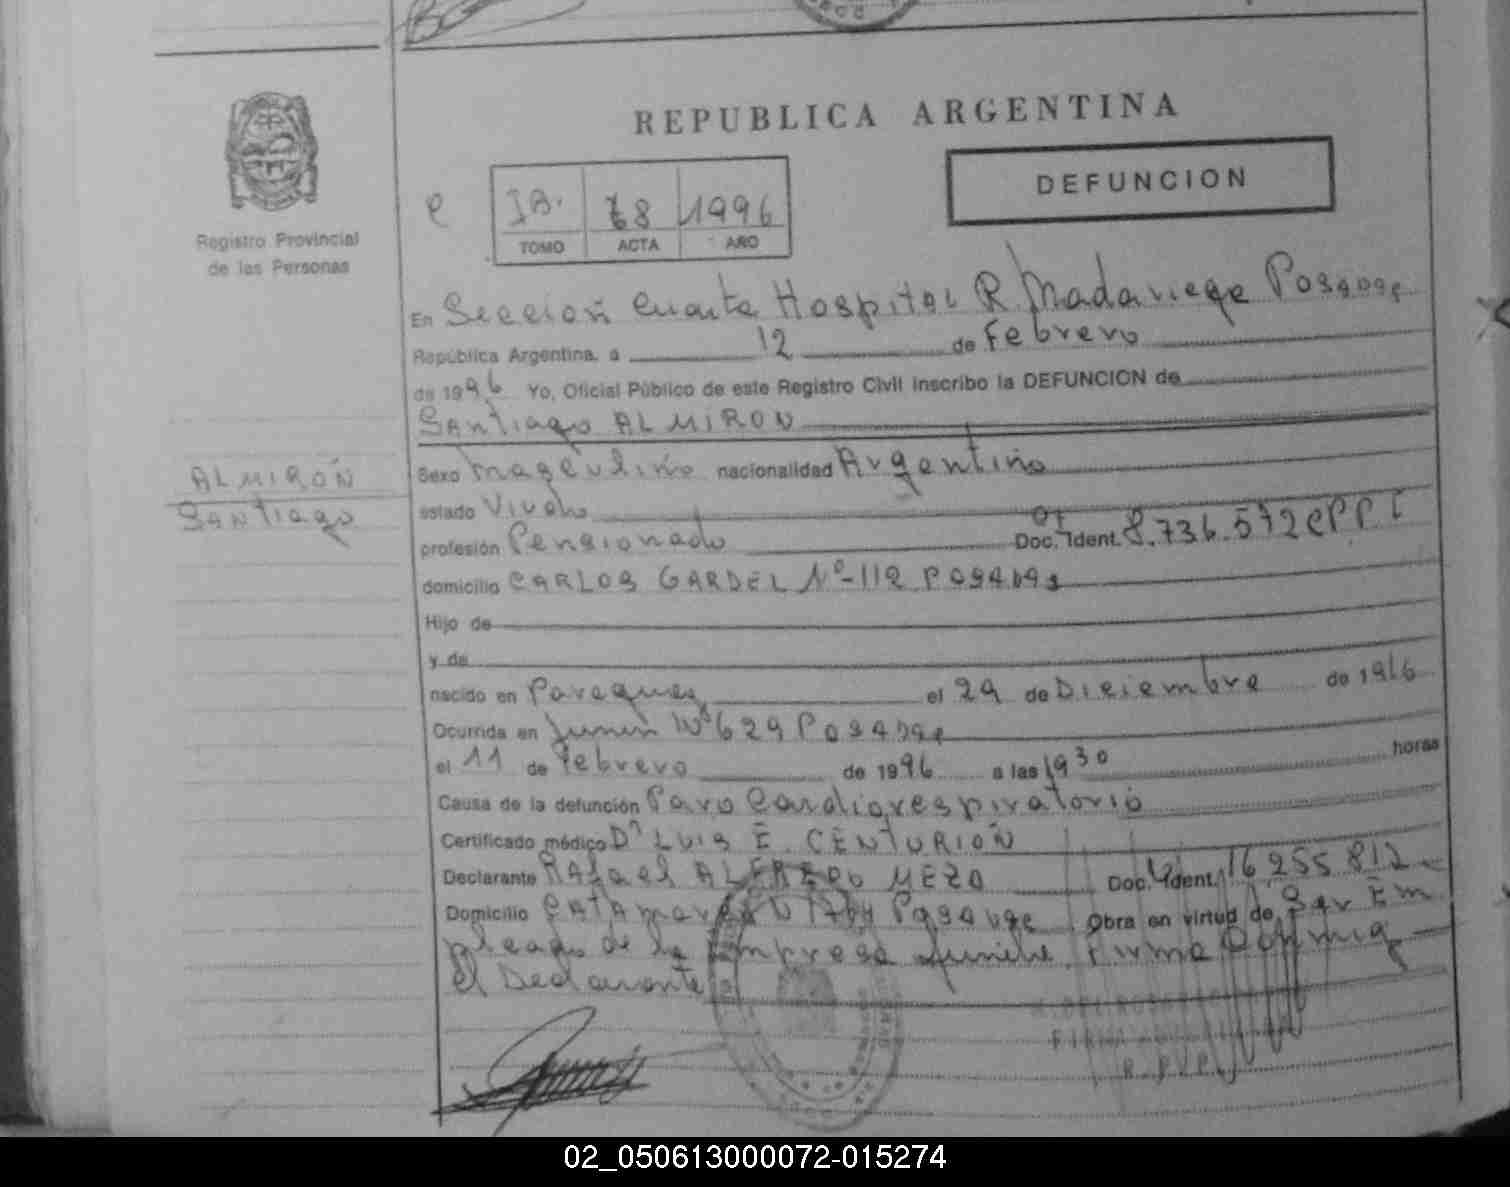 REPUBLICA ARGENTINA
DEFUNCION
Registro Provincial
de las Personas
1996
TOMO ACTA AÑO
En Sección Cuarta Hospital R. Madariaga Posadas
República Argentina, a 12 de Febrero
de 1996 Yo, Oficial Público de este Registro Civil inscribo la DEFUNCION de
Santiago ALMIRON
ALMIRÓN
Santiago
Sexo masculino nacionalidad Argentino
estado Viudo
profesión Pensionado Doc. Ident. 8.736.572
domicilio CARLOS GARDEL Nº 112 POSADAS
Hijo de
y de
nacido en Paraguay el 29 de Diciembre de 1916
Ocurrida en Junin Nº 629 Posadas
el 11 de Febrero de 1996 a las 19 30 horas
Causa de la defunción Paro Cardiorespiratorio
Certificado médico Dr LUIS E. CENTURION
Declarante Rafael ALFREDO MEZA Doc. Ident. 16 255 812
Domicilio CATAMARCA Posadas Obra en virtud de Ser Em
pleado de la Empresa funebre. Firma conmigo
el Declarante
02_050613000072-015274